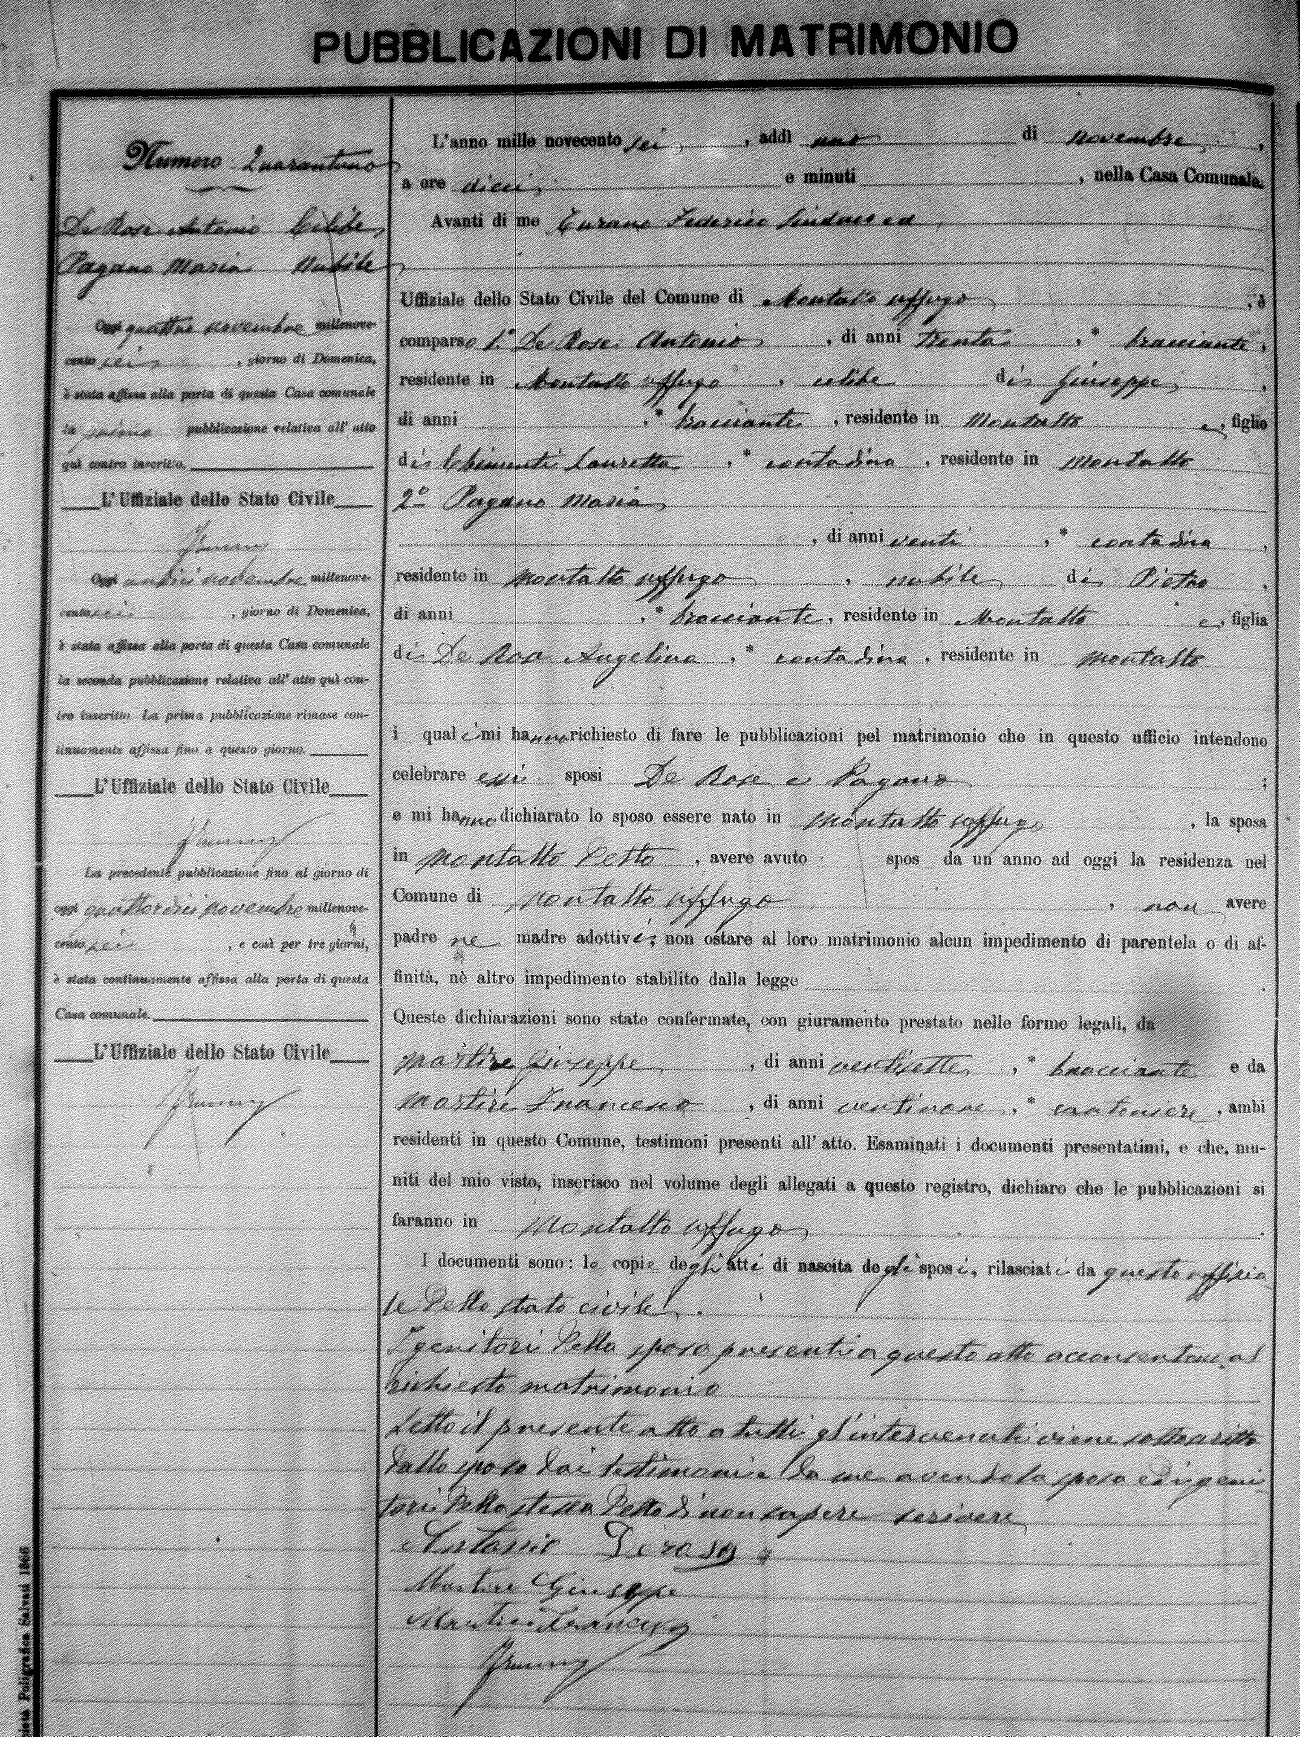 PUBBLICAZIONI DI MATRIMONIO
Numero Quarantuno
De Rose Antonio Celibe
Pagano Maria Nubile
Oggi quattro novembre millenove-
cento sei, giorno di Domenica,
è stata affissa alla porta di questa Casa comunale
la prima pubblicazione relativa all' atto
quì contro inscritto.
L'Uffiziale dello Stato Civile
Oggi undici novembre millenove-
cento sei, giorno di Domenica,
è stata affissa alla porta di questa Casa comunale
la seconda pubblicazione relativa all' atto quì con-
tro inscritto. La prima pubblicazione rimase con-
tinuamente affissa fino a questo giorno.
L'Uffiziale dello Stato Civile
La precedente pubblicazione fino al giorno di
oggi quattordici novembre millenove-
cento sei, e così per tre giorni,
è stata continuamente affissa alla porta di questa
Casa comunale.
L'Uffiziale dello Stato Civile
L'anno mille novecento sei, addì uno di novembre,
a ore dieci, e minuti , nella Casa Comunale.
Avanti di me Turano Federico Sindaco ed
Uffiziale dello Stato Civile del Comune di Montalto uffugo, è
comparso 1.° De Rose Antonio, di anni trenta, * bracciante,
residente in Montalto uffugo, celibe di Giuseppe,
di anni , * bracciante, residente in Montalto e, figlio
di Chimenti Lauretta, * contadina, residente in Montalto
2° Pagano Maria
, di anni venti, * contadina,
residente in Montalto uffugo, nubile di Pietro,
di anni , * bracciante, residente in Montalto e, figlia
di De Rose Angelina, * contadina, residente in Montalto
i quali mi hanno richiesto di fare le pubblicazioni pel matrimonio che in questo ufficio intendono
celebrare essi sposi De Rose e Pagano;
e mi hanno dichiarato lo sposo essere nato in Montalto uffugo, la sposa
in Montalto detto, avere avuto spos da un anno ad oggi la residenza nel
Comune di Montalto uffugo, non avere
padre ne madre adottivi; non ostare al loro matrimonio alcun impedimento di parentela o di af-
finità, nè altro impedimento stabilito dalla legge.
Queste dichiarazioni sono state confermate, con giuramento prestato nelle forme legali, da
Martire Giuseppe, di anni ventisette, * bracciante e da
Martire Francesco, di anni ventinove, * cantoniere, ambi
residenti in questo Comune, testimoni presenti all' atto. Esaminati i documenti presentatimi, e che, mu-
niti del mio visto, inserisco nel volume degli allegati a questo registro, dichiaro che le pubblicazioni si
faranno in Montalto uffugo.
I documenti sono: le copie degli atti di nascita degli sposi, rilasciati da questo uffizia
le dello stato civile.
I genitori della sposa presenti a questo atto acconsentono al
richiesto matrimonio
Letto il presente atto a tutti gl'intervenuti viene sottoscritto
dallo sposo dai testimoni e da me avendo la sposa ed i geni
tori della stessa detto di non sapere scrivere
Antonio Derose
Martire Giuseppe
Martire Francesco
Società Poligrafica Salvati 1866